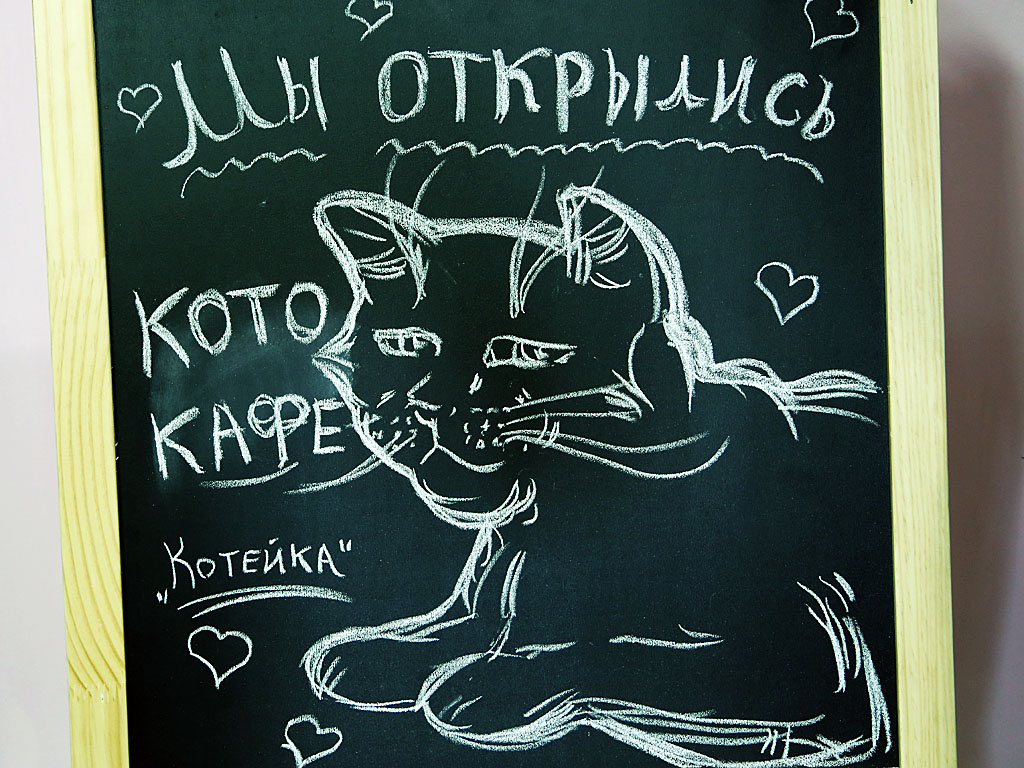 Мы открылись
КОТО
КАФЕ
„Котейка"